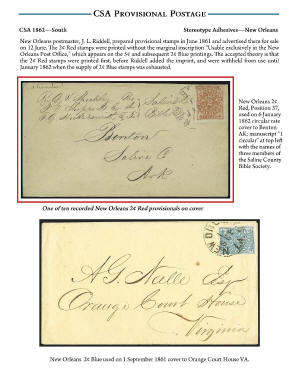 CSA PROVISIONAL POSTAGE
CSA 1862—South
Stereotype Adhesives—New Orleans
New Orleans postmaster, J. L. Riddell, prepared provisional stamps in June 1861 and advertised them for sale
on 12 June. The 2¢ Red stamps were printed without the marginal inscription "Usable exclusively in the New
Orleans Post Office," which appears on the 5¢ and subsequent 2¢ Blue printings. The accepted theory is that
the 2¢ Red stamps were printed first, before Riddell added the imprint, and were withheld from use until
January 1862 when the supply of 2¢ Blue stamps was exhausted.
Benton
Saline C
Ark
New Orleans 2¢
Red, Position 37,
used on 6 January
1862 circular rate
cover to Benton
AK; manuscript "1
circular" at top left
with the names of
three members of
the Saline County
Bible Society.
One of ten recorded New Orleans 2¢ Red provisionals on cover
A.G. Nelle Esq
Orange Court House
Virginia
New Orleans 2¢ Blue used on 1 September 1861 cover to Orange Court House VA.